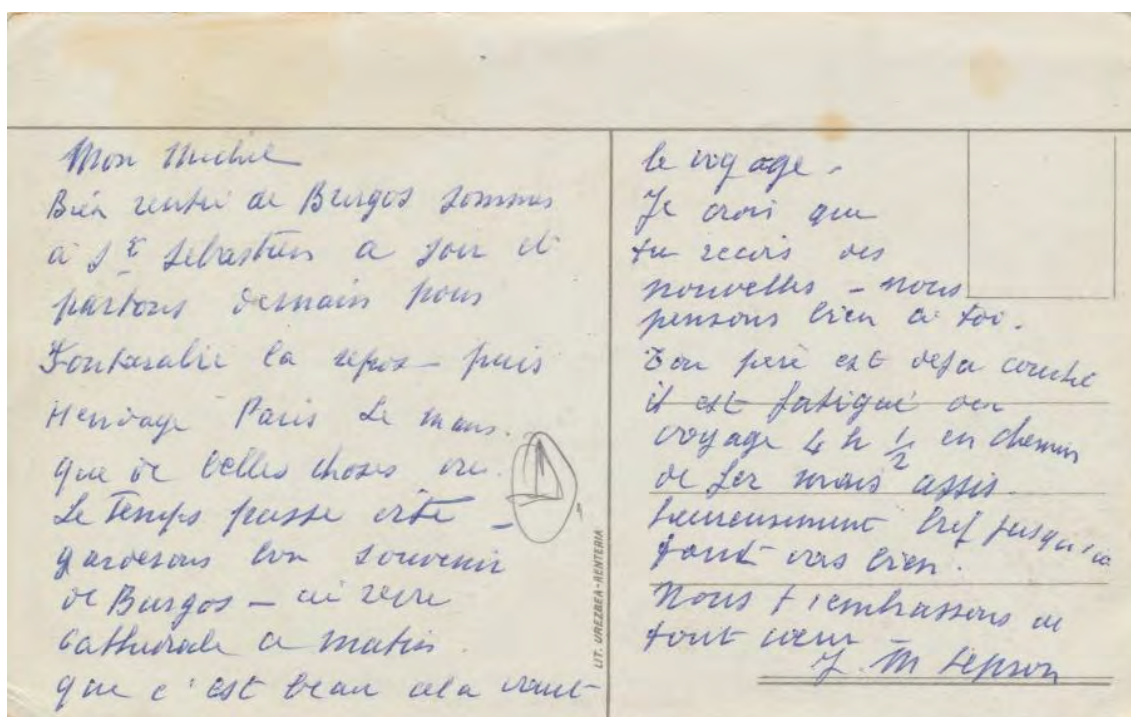 Mon Michel
Bien rentré de Burgos sommes
à St Sébastien ce soir et
partons demain pour
Fontarabie la repos - puis
Hendaye Paris Le Mans.
que de belles choses vu.
Le Temps passe vite -
garderons bon souvenir
de Burgos - ai revu
Cathedrale ce matin.
que c'est beau cela vaut
LIT. UREZBEA-RENTERIA
le voyage -
Je crois que
tu recois des
nouvelles - nous
pensons bien à toi.
Ton père est deja couché
il est fatigué du
voyage 4 h 1/2 en chemin
de fer mais assis
heureusement bref jusqu'ici
tout vas bien.
Nous t'embrassons de
tout cœur
J. M